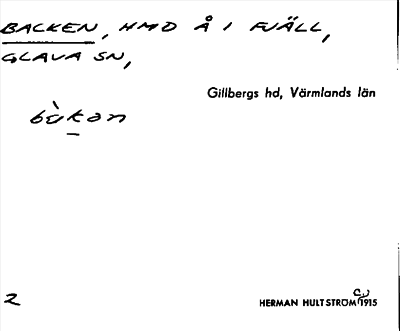 BACKEN, HMD Å I FJÄLL,
GLAVA SN,
Gillbergs hd, Värmlands län
bàkan
2
HERMAN HULTSTRÖM 1915